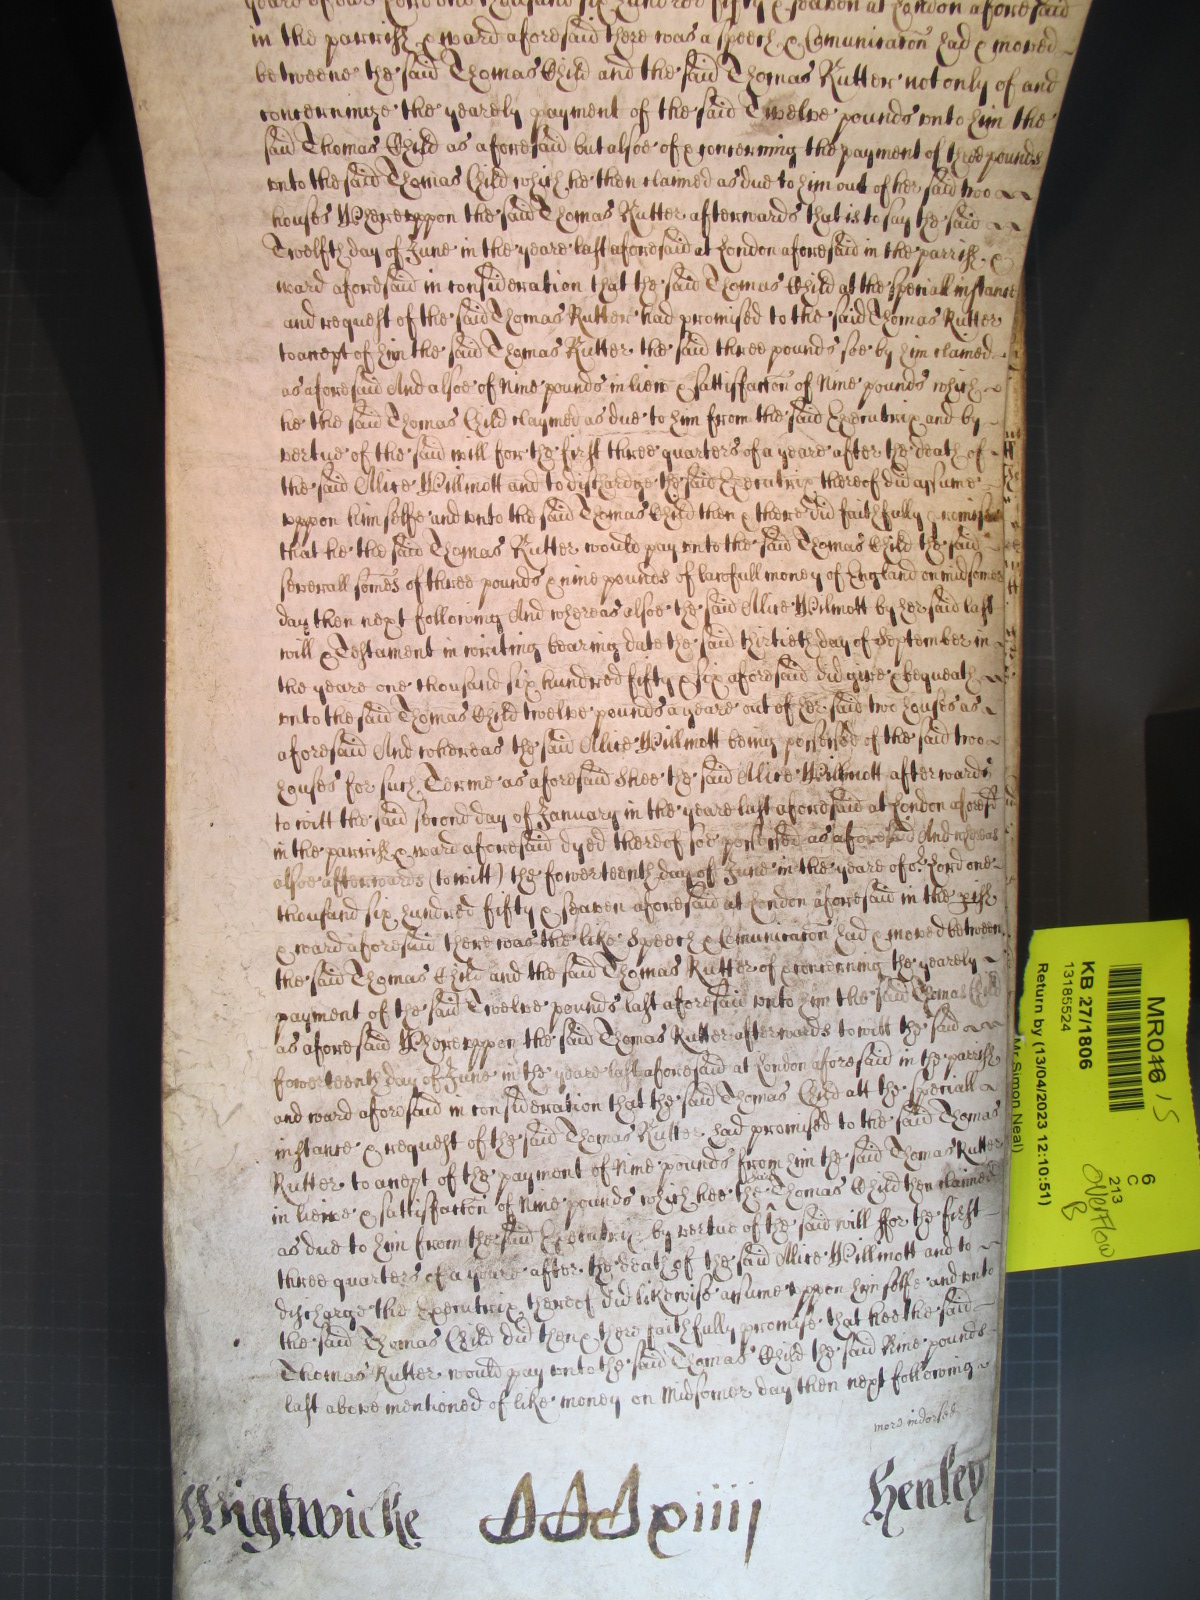 yeare of our Lord one thousand six hundred fifty & seaven at London aforesaid
in the parrish & ward aforesaid there was a speech & Comunicacōn had & moved
betweene the said Thomas Child and the said Thomas Rutter not only of and
concerninge the yearely payment of the said Twelve pounds unto him the
said Thomas Child as aforesaid but alsoe of & concerning the payment of three pounds
unto the said Thomas Child which he then claimed as due to him out of her said two
houses Whereuppon the said Thomas Rutter afterwards that is to say the said
Twelfth day of June in the yeare last aforesaid at London aforesaid in the parrish &
ward aforesaid in consideration that the said Thomas Child at the speciall instance
and request of the said Thomas Rutter had promised to the said Thomas Rutter
to accept of him the said Thomas Rutter the said three pounds soe by him clamed
as aforesaid And alsoe of Nine pounds in liew & sattisfaccōn of Nine pounds which
he the said Thomas Child claymed as due to him from the said Executrix and by
vertue of the said will for the first three quarters of a yeare after the death of
the said Alice Willmott and to discharge the said Executrix thereof did assume
uppon himselfe and unto the said Thomas Child then & there did faithfully promise
that he the said Thomas Rutter would pay unto the said Thomas Child the said
severall somēs of three pounds & nine pounds of lawfull money of England on midsomer
day then next following And whereas alsoe the said Alice Wilmott by her said last
will & Testament in writing bearing date the said thirtieth day of September in
the yeare one thousand six hundred fifty & six aforesaid did give & bequeath
unto the said Thomas Child twelve pounds a yeare out of her said two houses as
aforesaid And whereas the said Alice Willmott being possessed of the said two
houses for such Terme as aforesaid Shee the said Alice Willmott afterwards
to witt the said second day of January in the yeare last aforesaid at London aforesd
in the parrish & ward aforesaid dyed thereof soe possessed as aforesaid And whereas
alsoe afterwards (to witt) the fowerteenth day of June in the yeare of or Lord one
thousand six hundred fifty & seaven aforesaid at London aforesaid in the pish
& ward aforesaid there was the like Speech & Comunicacōn had & moved between
the said Thomas Child and the said Thomas Rutter of & concerning the yearely
payment of the said Twelve pounds last aforesaid unto him the said Thomas Child
as aforesaid Whereuppon the said Thomas Rutter afterwards to witt the said
fowerteenth day of June in the yeare last aforesaid at London aforesaid in the parrish
and ward aforesaid in consideration that the said Thomas Child att the speciall
instance & request of the said Thomas Rutter had promised to the said Thomas
Rutter to accept of the payment of Nine pounds from him the said Thomas Rutter
in liewe & sattisfaccōn of Nine pounds which hee the said Thomas Child then claimed
as due to him from the said Executrix by vertue of the said will ffor the first
three quarters of a yeare after the death of the said Alice Willmott and to
discharge the Executrix thereof did likewise assume uppon himselfe and unto
the said Thomas Child did then & there faithfully promise that hee the said
Thomas Rutter would pay unto the said Thomas Child the said Nine pounds
last above mentioned of like money on Midsomer day then next following
more indorsed
Wigtwicke
xiiij
Henley
MR046 15
KB 27/1806
13185524
Return by (13/04/2023 12:10:51)
Mr Simon Neal)
6
C
213
Overflow
B